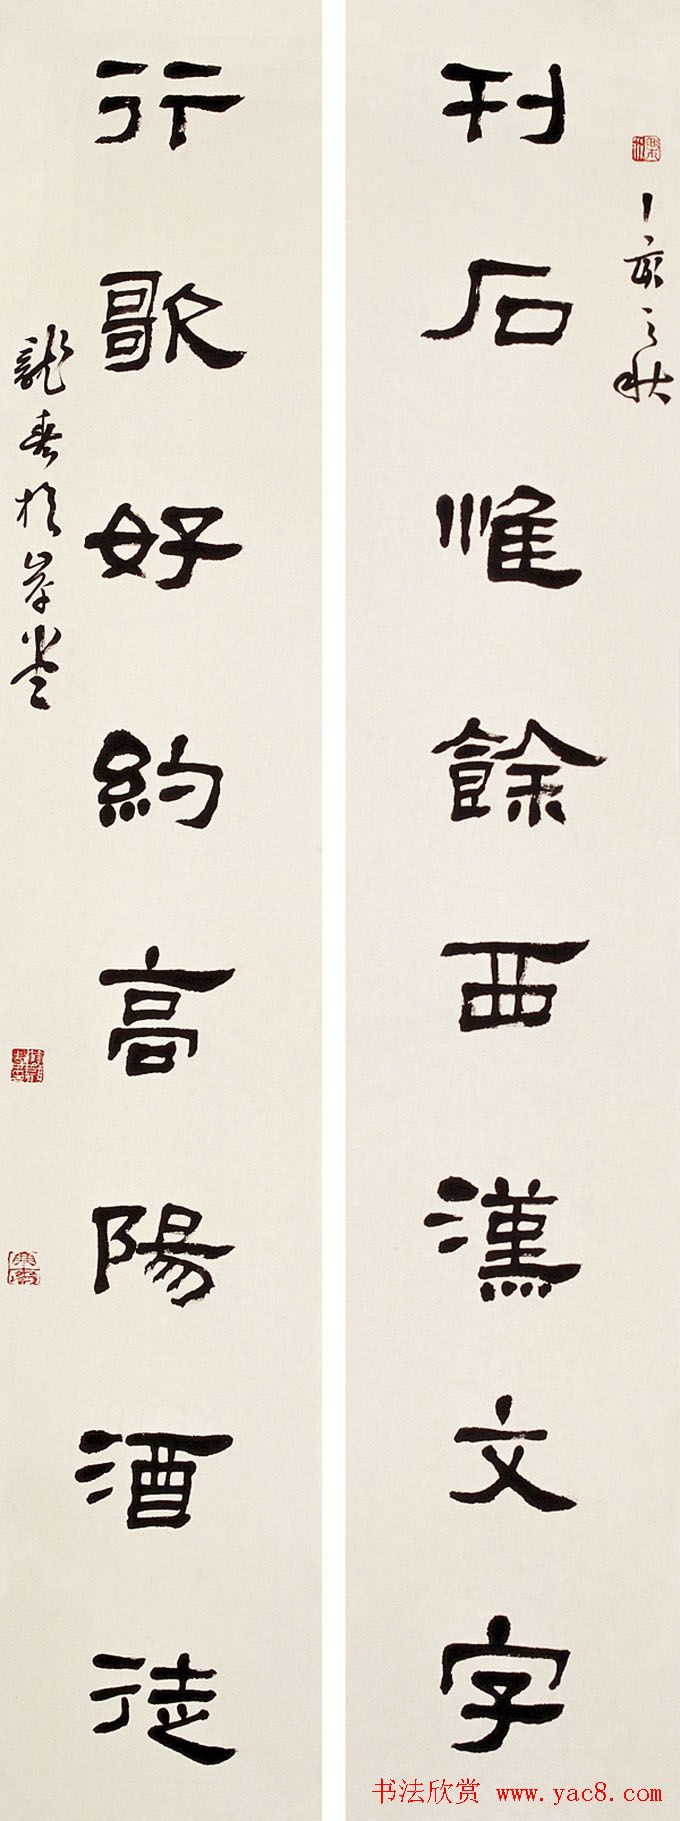 丁亥之秋
刊石惟餘西漢文字
行歌好約高陽酒徒
书法欣赏 www.yac8.com